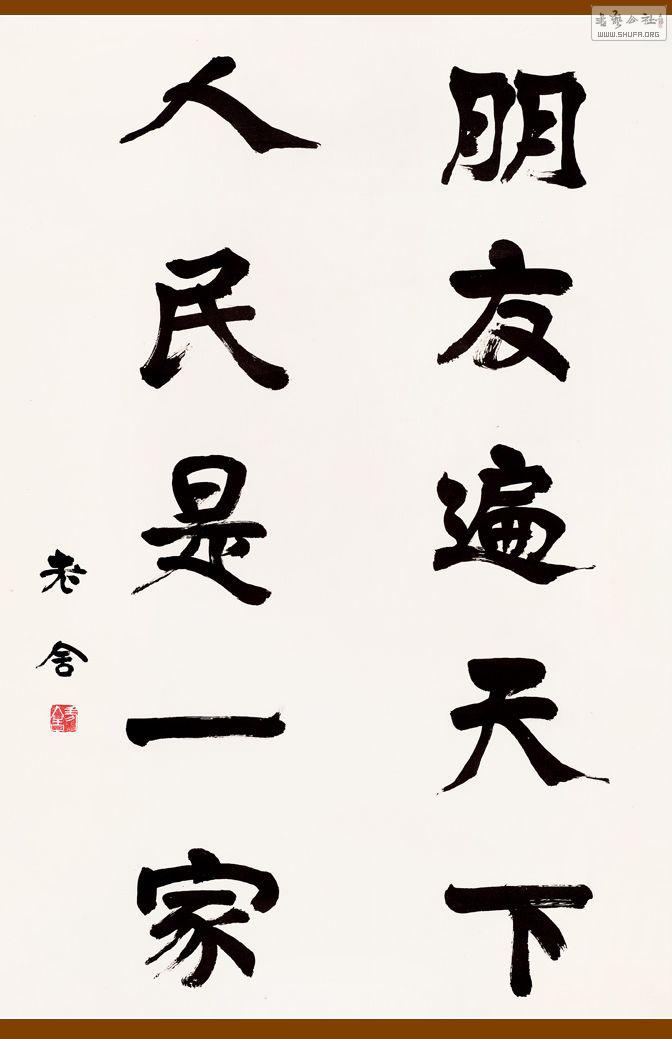 朋友遍天下
人民是一家
老舍
书艺公社
WWW.SHUFA.ORG